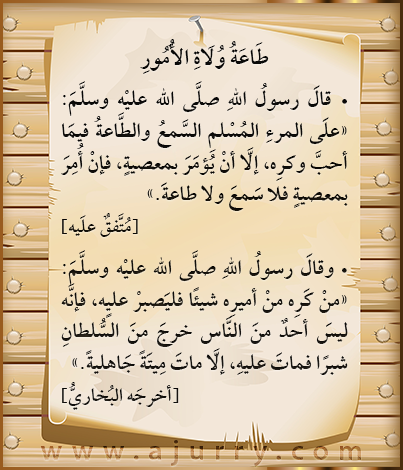 طَاعَةُ وُلَاةِ الأُمُورِ
• قالَ رسولُ اللهِ صلَّى الله عليْه وسلَّمَ:
«علَى المرءِ المُسْلمِ السَّمعُ والطَّاعةُ فيمَا
أحبَّ وكرِه، إلَّا أنْ يُؤمَرَ بمعصيةٍ، فإنْ أُمِرَ
بمعصيةٍ فلا سَمعَ ولا طاعةَ.»
[مُتَّفقٌ علَيه]
• وقالَ رسولُ اللهِ صلَّى الله عليْه وسلَّمَ:
«منْ كَرِه منْ أميرِه شيئًا فليَصبرْ عليهِ، فإنَّه
ليسَ أحدٌ منَ النَّاس خرجَ منَ السُّلطانِ
شبرًا فماتَ عليهِ، إلَّا ماتَ مِيتَةً جَاهليةً.»
[أخرجَه البُخاريُّ]
www.ajurry.com